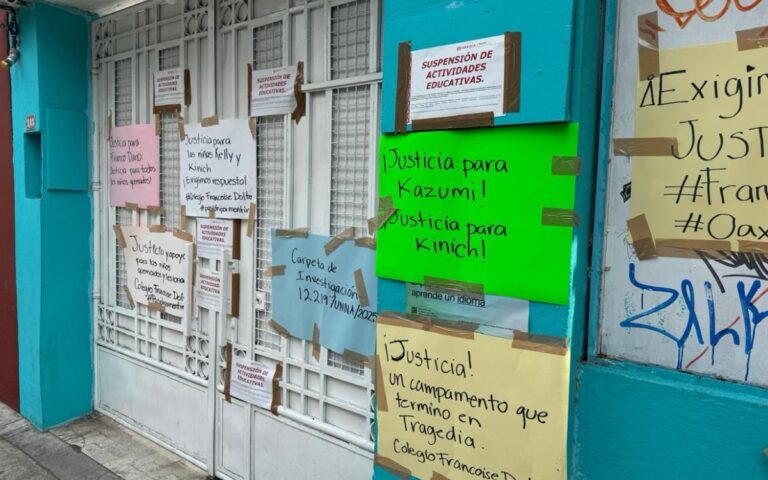 SUSPENSIÓN DE
ACTIVIDADES
EDUCATIVAS.
SUSPENSIÓN DE
ACTIVIDADES
EDUCATIVAS.
Justicia
para
Franco David
Justicia para todos
los niños
quemados!
Justicia para
los niños Kelly y
Kinich
¡Exigimos respuesta!
#Colegio Francoise Dolto
Justicia y apoyo
para los niños
quemados y
Colegio Francoise Dol
SUSPENSIÓN
DE ACTIVIDADES
EDUCATIVAS.
SUSPENSIÓN
DE ACTIVIDADES
EDUCATIVAS.
SUSPENSIÓN DE
ACTIVIDADES
EDUCATIVAS.
Carpeta de
Investigación
12219/UNNA/2025
SUSPENSIÓN DE
ACTIVIDADES
EDUCATIVAS.
¡Justicia para
Kazumi!
¡Justicia para
Kinich!
aprende un idioma
¡Justicia!
un campamento que
termino en
Tragedia.
Colegio Francoise Dol
¡Exigim
Justi
#Fran
#Oax